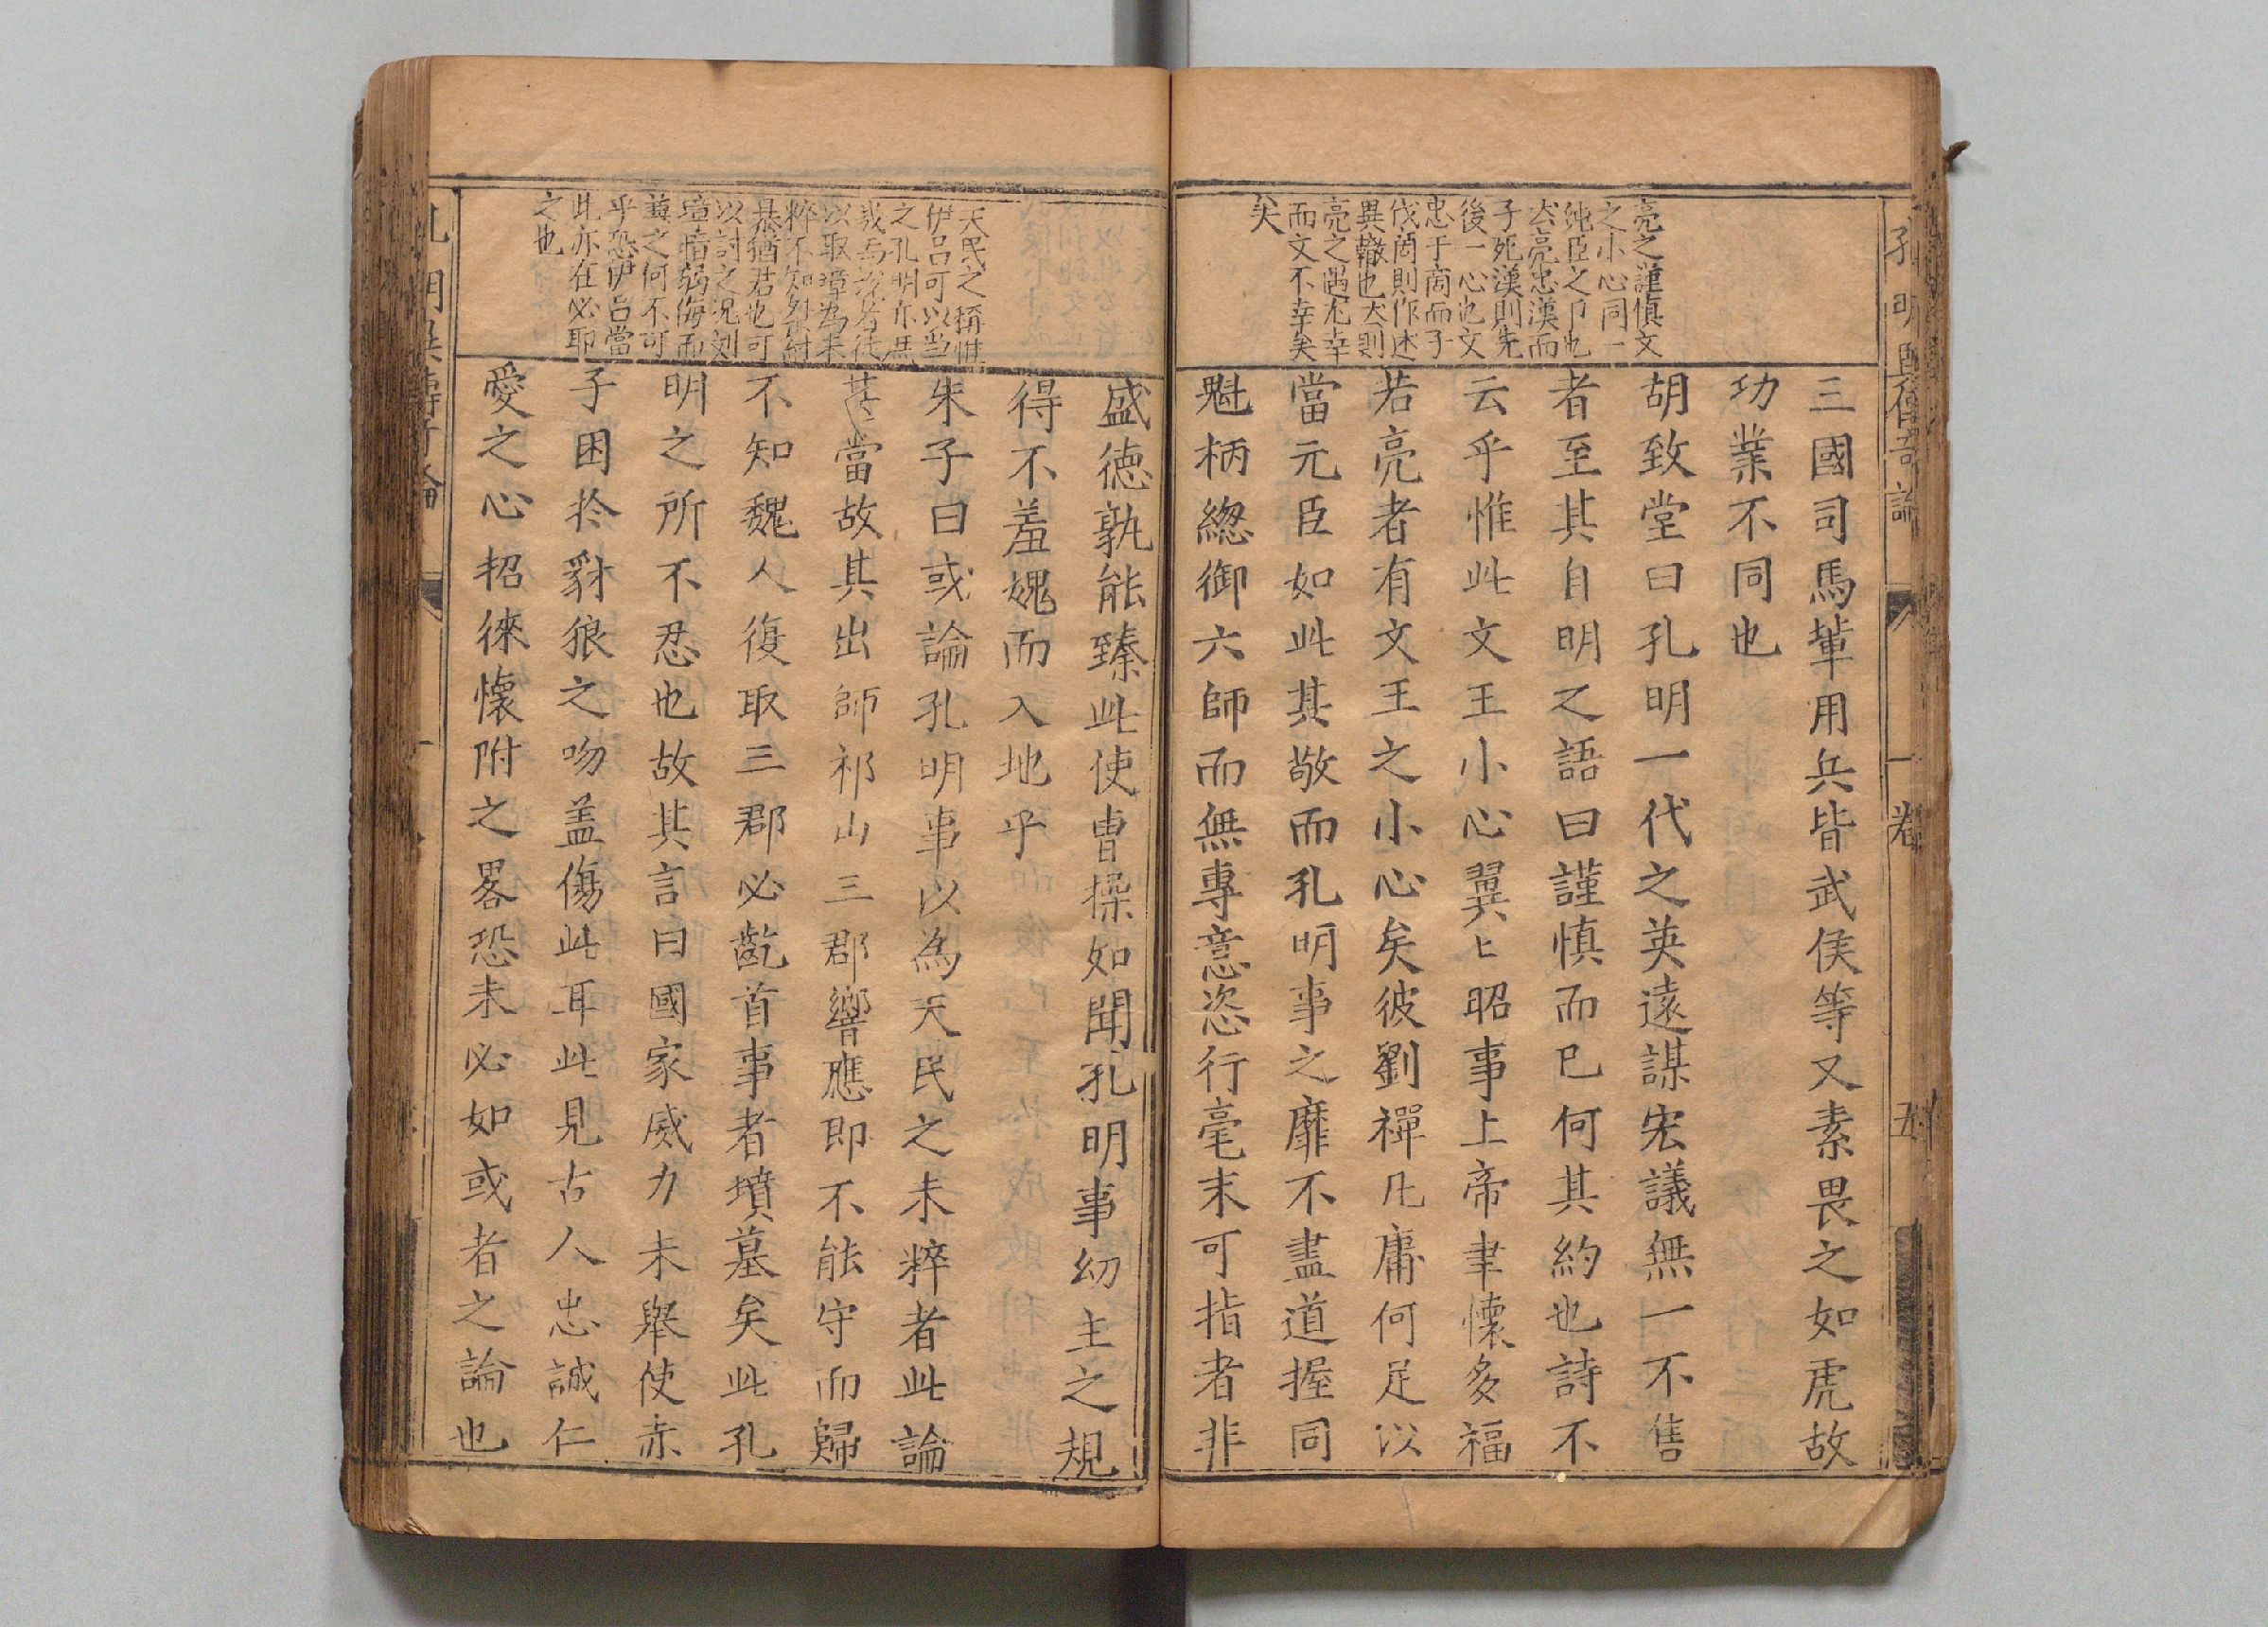 孔明異傳奇論
一卷
五
亮之謹慎文
之小心同一
純臣之卩也
夫亮忠漢而
子死漢則先
後一心也文
忠于商而子
伐商則作述
異轍也夫則
亮之遇尤幸
而文不幸矣
矣
三國司馬輩用兵皆武侯等又素畏之如虎故
功業不同也
胡致堂曰孔明一代之英遠謀宏議無一不售
者至其自明之語曰謹慎而已何其約也詩不
云乎惟此文王小心翼〻昭事上帝聿懷多福
若亮者有文王之小心矣彼劉禪凡庸何足以
當元臣如此其敬而孔明事之靡不盡道握同
魁柄緫御六師而無專意恣行毫末可指者非
天民之稱惟
伊呂可以当
之孔明亦庶
或為次若徒
以取璋為未
粹不知烈紂
暴猶君也可
以討之况刘
璋暗弱侮而
兼之何不可
乎恐伊呂當
此亦在必耶
之也
盛德孰能臻此使曹操如聞孔明事幼主之規
得不羞媿而入地乎
朱子曰或論孔明事以為天民之未粹者此論
甚當故其出師祁山三郡響應即不能守而歸
不知魏人復取三郡必齕首事者墳墓矣此孔
明之所不忍也故其言曰國家威力未舉使赤
子困於豺狼之吻盖傷此耳此見古人忠誠仁
愛之心招徠懷附之畧恐未必如或者之論也